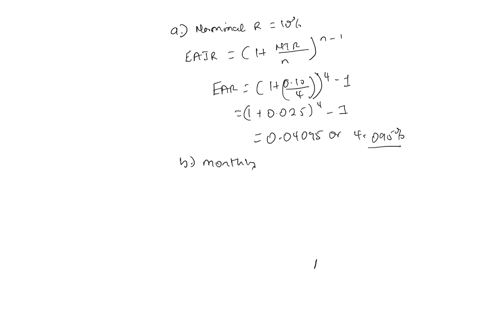 a.) Nominal R = 10%
EAIR = (1 + NIR/n)^n - 1
EAR = (1 + (0.10/4))^4 - 1
= (1 + 0.025)^4 - 1
= 0.04095 or 4.095%
b.) monthly